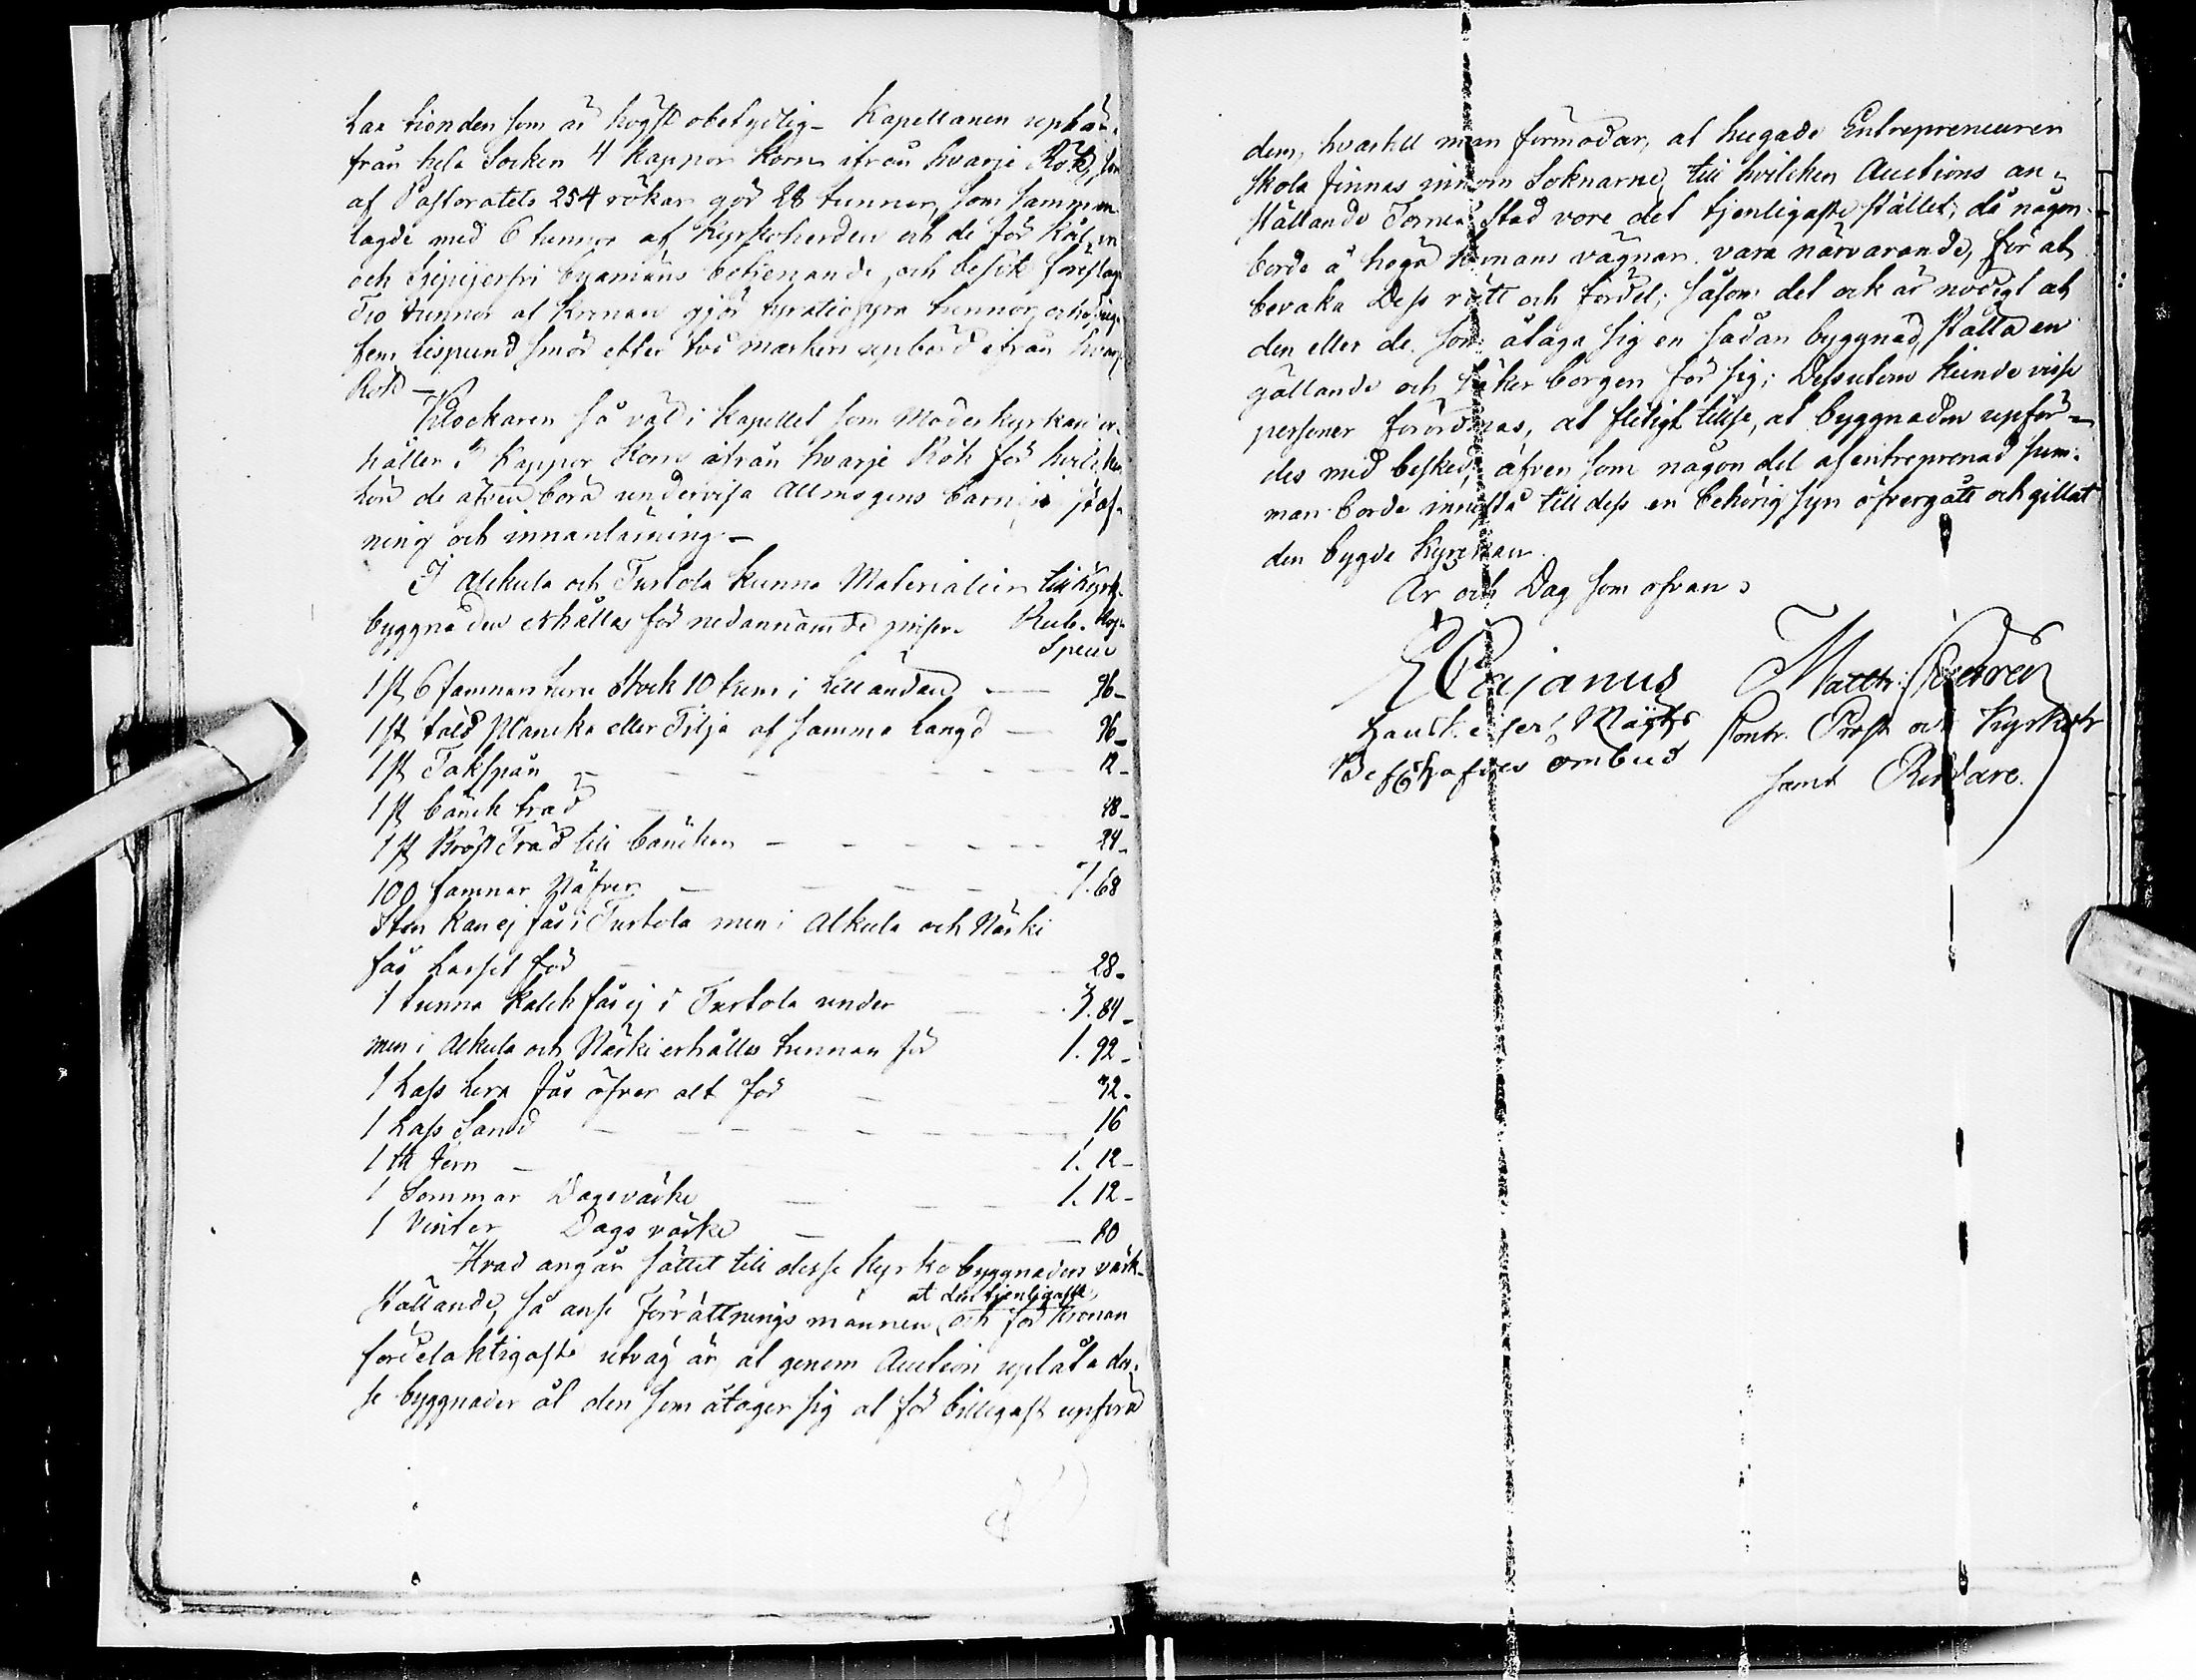 har tienden som är högst obetydlig – Kapellanen uphär
från hela Socken 4 kappor Korn ifrån hvarje Rök, som
af Pastoratets 254 rökar gör 28 tunnor, som samman
lagde med 6 tunnor af Kyrkoherden och de för
och byamäns betjenande, och besök föreslag
Tio tunnor af Kronan gjör fyratiofyra tunnor, och
fem lispund smör efter två markers upbörd ifrån hvarje
Rök –
Klockaren så väl i Kapellet som Moderkyrkan er-
håller 2 kappor Korn ifrån hvarje Rök för hvilken
lön de äfven böra undervisa Allmogens barn i staf-
ning och innanläsning –
I Alkula och Turtola kunna Materialier till Kyrk-
byggnaden erhållas för nedannämde priser. Rub. Kop.
Specie
1 st 6 famnars furu Stock 10 tum i lilländan — 96 –
1 st såld Plancka eller Tilja af samma längd — 96 –
1 st Takspån — 12 –
1 st bänck träd 48 –
1 st Bröst Träd till bäncken — 24 –
100 famnar Näfver — 7. 68
Sten kan ej fås i Turtola men i Alkula och Närki
fås lasset för 28 –
1 tunna kalck fås ej i Turtola under 3. 84 –
men i Alkula och Närki erhålles tunnan för 1. 92 –
1 Lass Lera fås öfver alt för 32 –
1 Lass Sand — 16
1 ℔ Jern — 1. 12 –
1 Sommar Dagsvärke — 1. 12 –
1 Vinter Dags värke — 80
Hvad angår sättet till desse Kyrko byggnaders värk-
at den tjenligaste
ställande, så anse Förrättnings männen och för Kronan
fördelaktigaste utväg är, at genom Auction uplåta des-
se byggnader åt den som åtager sig at för billigast upföra
dem, hvartill man förmodar, at hugade Entrepreneurer
skola finnas innom Soknarne, till hvilken Auctions an-
ställande Torneå Stad vore det tjenligaste stället, då någon
borde å höga Kronans vägnar vara närvarande, för at
bevaka Dess rätt och fördel; såsom det ock är nödigt at
den eller de, som åtaga sig en sådan byggnad, ställa en
gällande och säker borgen för sig; Dessutom kunde visse
personer förordnas, at flitigt tillse, at byggnaden upför-
des med besked, äfven som någon del af entreprenad sum-
man borde innestå till dess en behörig syn öfvergått och gillat
den bygde Kyrckan.
År och Dag som ofvan
E Cajanus Matth:
Befhafvdes ombud Contr. Prost och Kyrkoh
samt Riddare.